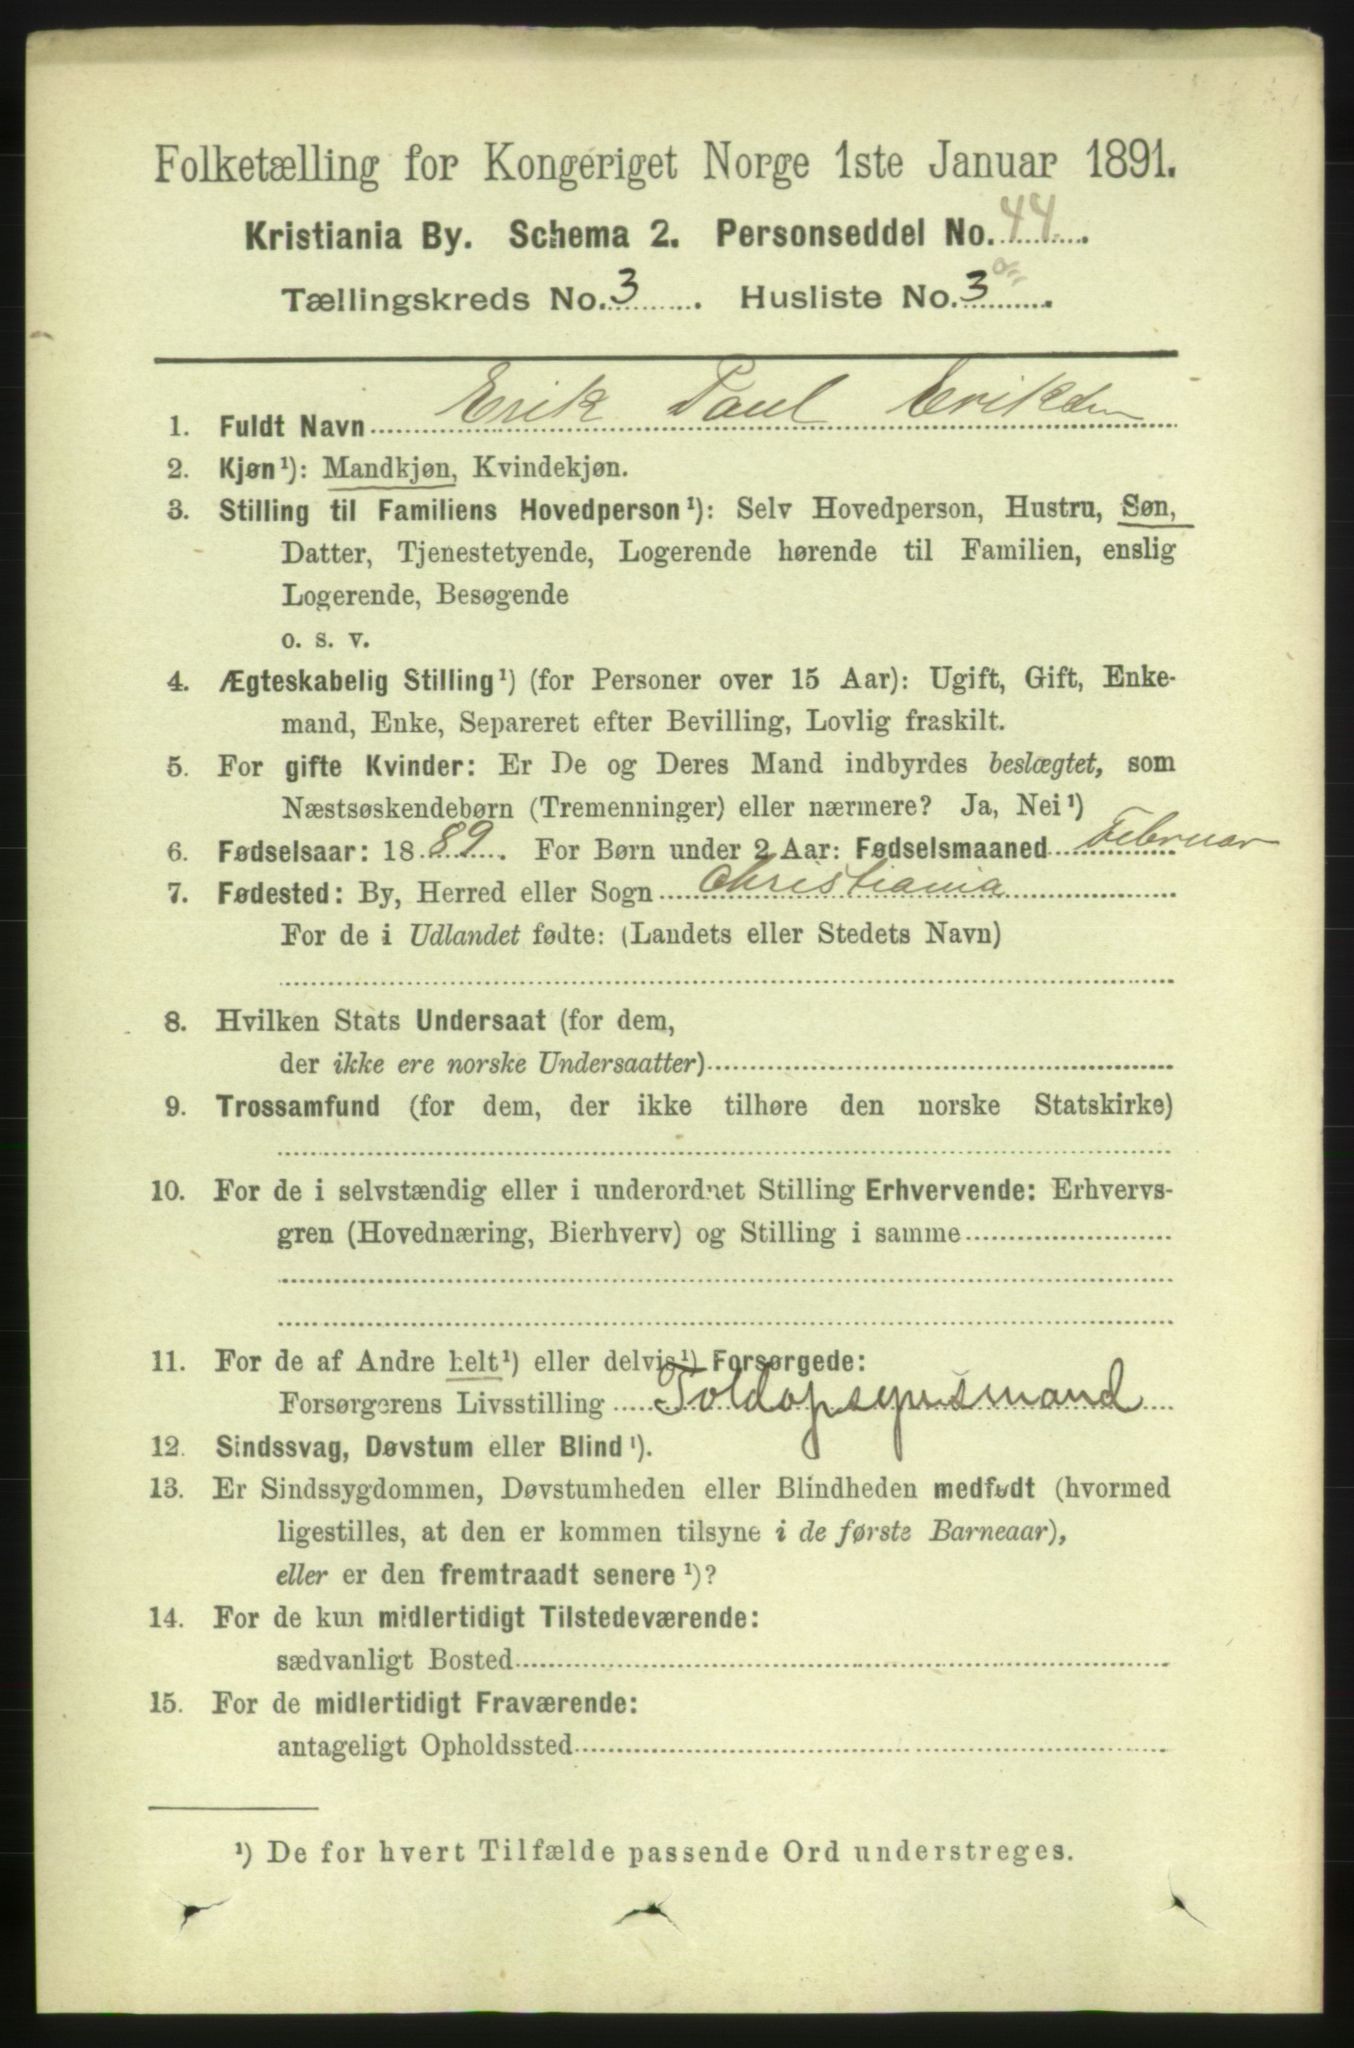 Folketælling for Kongeriget Norge 1ste Januar 1891.
Kristiania By. Schema 2. Personseddel No. 44.
Tællingskreds No. 3. Husliste No. 3.
1. Fuldt Navn Erik Paul Eriksen
2. Kjøn¹): Mandkjøn, Kvindekjøn.
3. Stilling til Familiens Hovedperson¹): Selv Hovedperson, Hustru, Søn,
Datter, Tjenestetyende, Logerende hørende til Familien, enslig
Logerende, Besøgende
o. s. v.
4. Ægteskabelig Stilling¹) (for Personer over 15 Aar): Ugift, Gift, Enke-
mand, Enke, Separeret efter Bevilling, Lovlig fraskilt.
5. For gifte Kvinder: Er De og Deres Mand indbyrdes beslægtet, som
Næstsøskendebørn (Tremenninger) eller nærmere? Ja, Nei¹)
6. Fødselsaar: 1889. For Børn under 2 Aar: Fødselsmaaned Februar
7. Fødested: By, Herred eller Sogn Christiania
For de i Udlandet fødte: (Landets eller Stedets Navn)
8. Hvilken Stats Undersaat (for dem,
der ikke ere norske Undersaatter)
9. Trossamfund (for dem, der ikke tilhøre den norske Statskirke)
10. For de i selvstændig eller i underordnet Stilling Erhvervende: Erhvervs-
gren (Hovednæring, Bierhverv) og Stilling i samme
11. For de af Andre helt¹) eller delvis¹) Forsørgede:
Forsørgerens Livsstilling Toldopsynsmand
12. Sindssvag, Døvstum eller Blind¹).
13. Er Sindssygdommen, Døvstumheden eller Blindheden medfødt (hvormed
ligestilles, at den er kommen tilsyne i de første Barneaar),
eller er den fremtraadt senere¹)?
14. For de kun midlertidigt Tilstedeværende:
sædvanligt Bosted
15. For de midlertidigt Fraværende:
antageligt Opholdssted
¹) De for hvert Tilfælde passende Ord understreges.